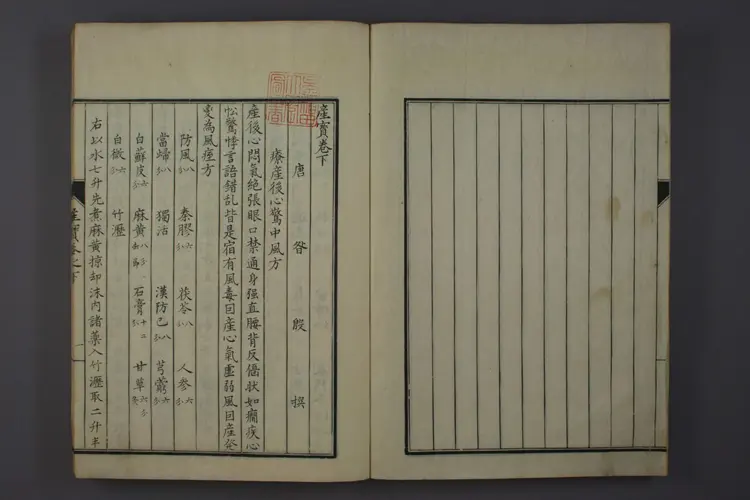 產寶卷下
唐 昝殷 撰
療產後心驚中風方
產後心悶氣絕張眼口禁通身强直腰背反偃狀如癇疾心
忪驚悸言語錯乱皆是宿有風毒因產心氣虛弱風因產發
變為風痙方
防風八分 秦膠六分 茯苓八分 人參六分
當歸八分 獨活 漢防己八分 芎藭六分
白蘚皮六分 麻黃八分去節 石膏十二分 甘草六分
白薇六分 竹瀝
右以水七升先煮麻黃掠却沫內諸藥入竹瀝取二升半
產寶卷之下 一